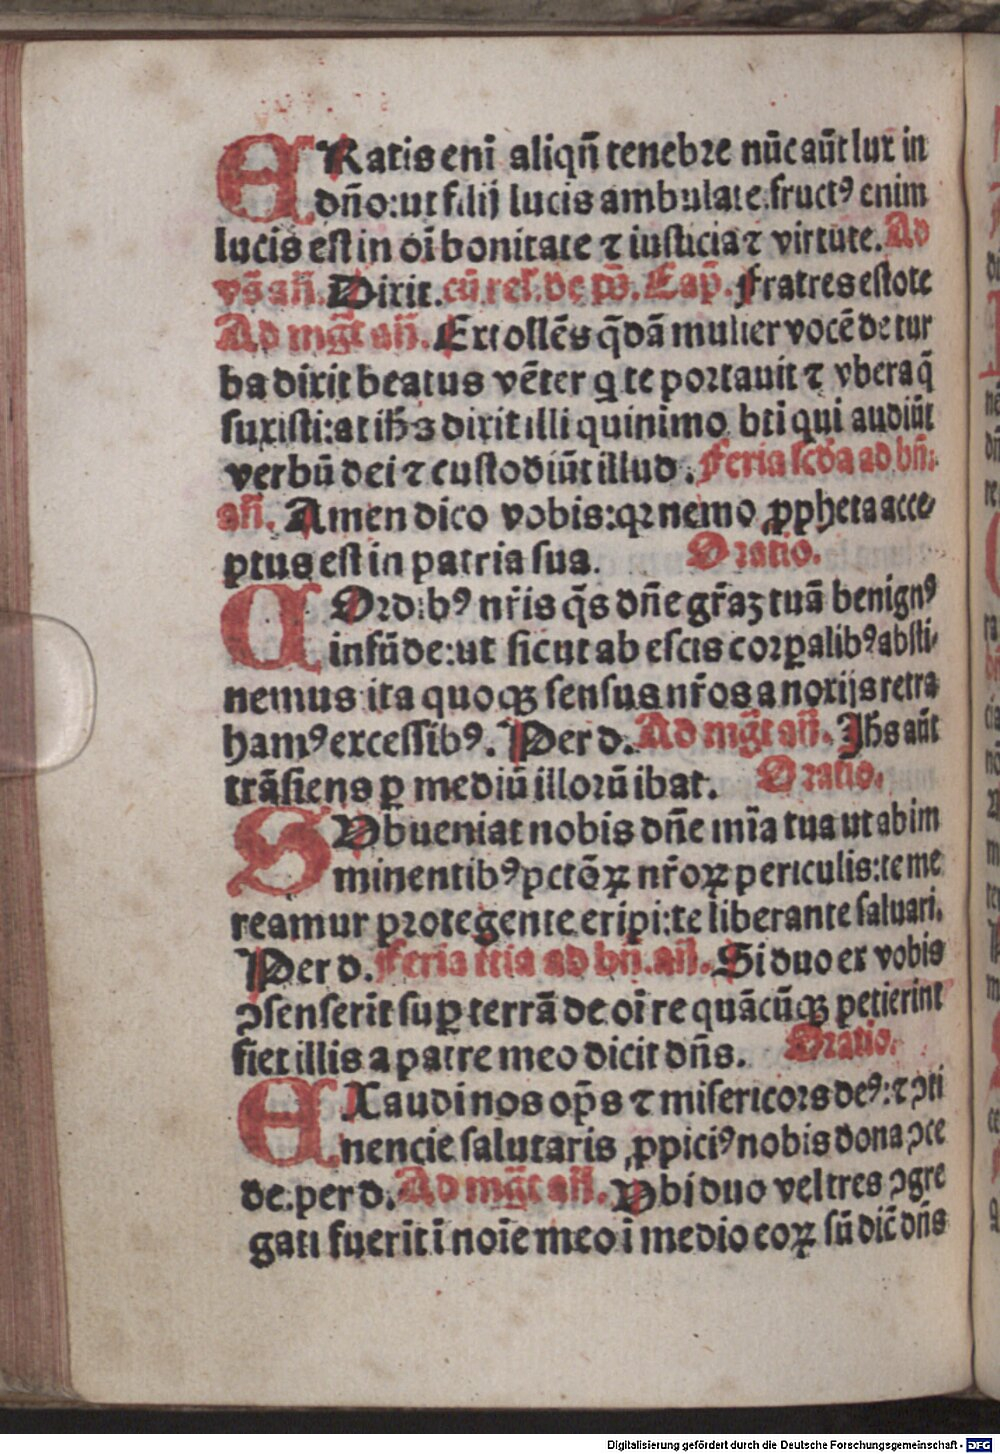 ERatis eni᷃ aliqn̄ tenebre nūc aūt lux in
dn̄o: ut filij lucis ambulate. fructꝰ enim
lucis est in oī bonitate ⁊ iusticia ⁊ virtute. Ad
vs̄ añ. Dixit. cū rel̕. de p̄o. Cap̄. Fratres estote
Ad mgt̄ añ. Extollēs q̄dā mulier vocē de tur
ba dixit beatus vēter q te portauit ⁊ vbera q̄
suxisti: at ih̄s dixit illi quinimo bti qui audiūt
verbū dei ⁊ custodiūt illud. Feria scd̄a ad bn̄.
añ. Amen dico vobis: qꝛ nemo ꝓpheta acce⸗
ptus est in patria sua. Oratio.
COrdibꝰ nr̄is q̄s dn̄e gr̄aꝫ tuā benignꝰ
infūde: ut sicut ab escis corꝑalibꝰ absti⸗
nemus ita quoqꝫ sensus nr̄os a noxijs retra
hamꝰ excessibꝰ. Per d. Ad mgt̄ añ. Jh̄s aūt
trāsiens ꝑ mediū illorū ibat. Oratio.
SVbueniat nobis dn̄e mīa tua ut ab im
minentibꝰ pctōꝝ nr̄oꝝ periculis: te me
reamur protegente eripi: te liberante saluari.
Per d. Feria tcia ad bn̄. añ. Si duo ex vobis
ꝯsenserīt suꝑ terrā de oī re quācūqꝫ petierint
fiet illis a patre meo dicit dn̄s. Oratio.
EXaudi nos op̄s ⁊ misericors deꝰ: ⁊ ꝯti
nencie salutaris ꝓpiciꝰ nobis dona ꝯce
de. per d. Ad mgt̄ añ. Vbi duo vel tres ꝯgre
gati fuerīt ī noīe meo ī medio eoꝝ sū dic̄ dn̄s
Digitalisierung gefördert durch die Deutsche Forschungsgemeinschaft - DFG